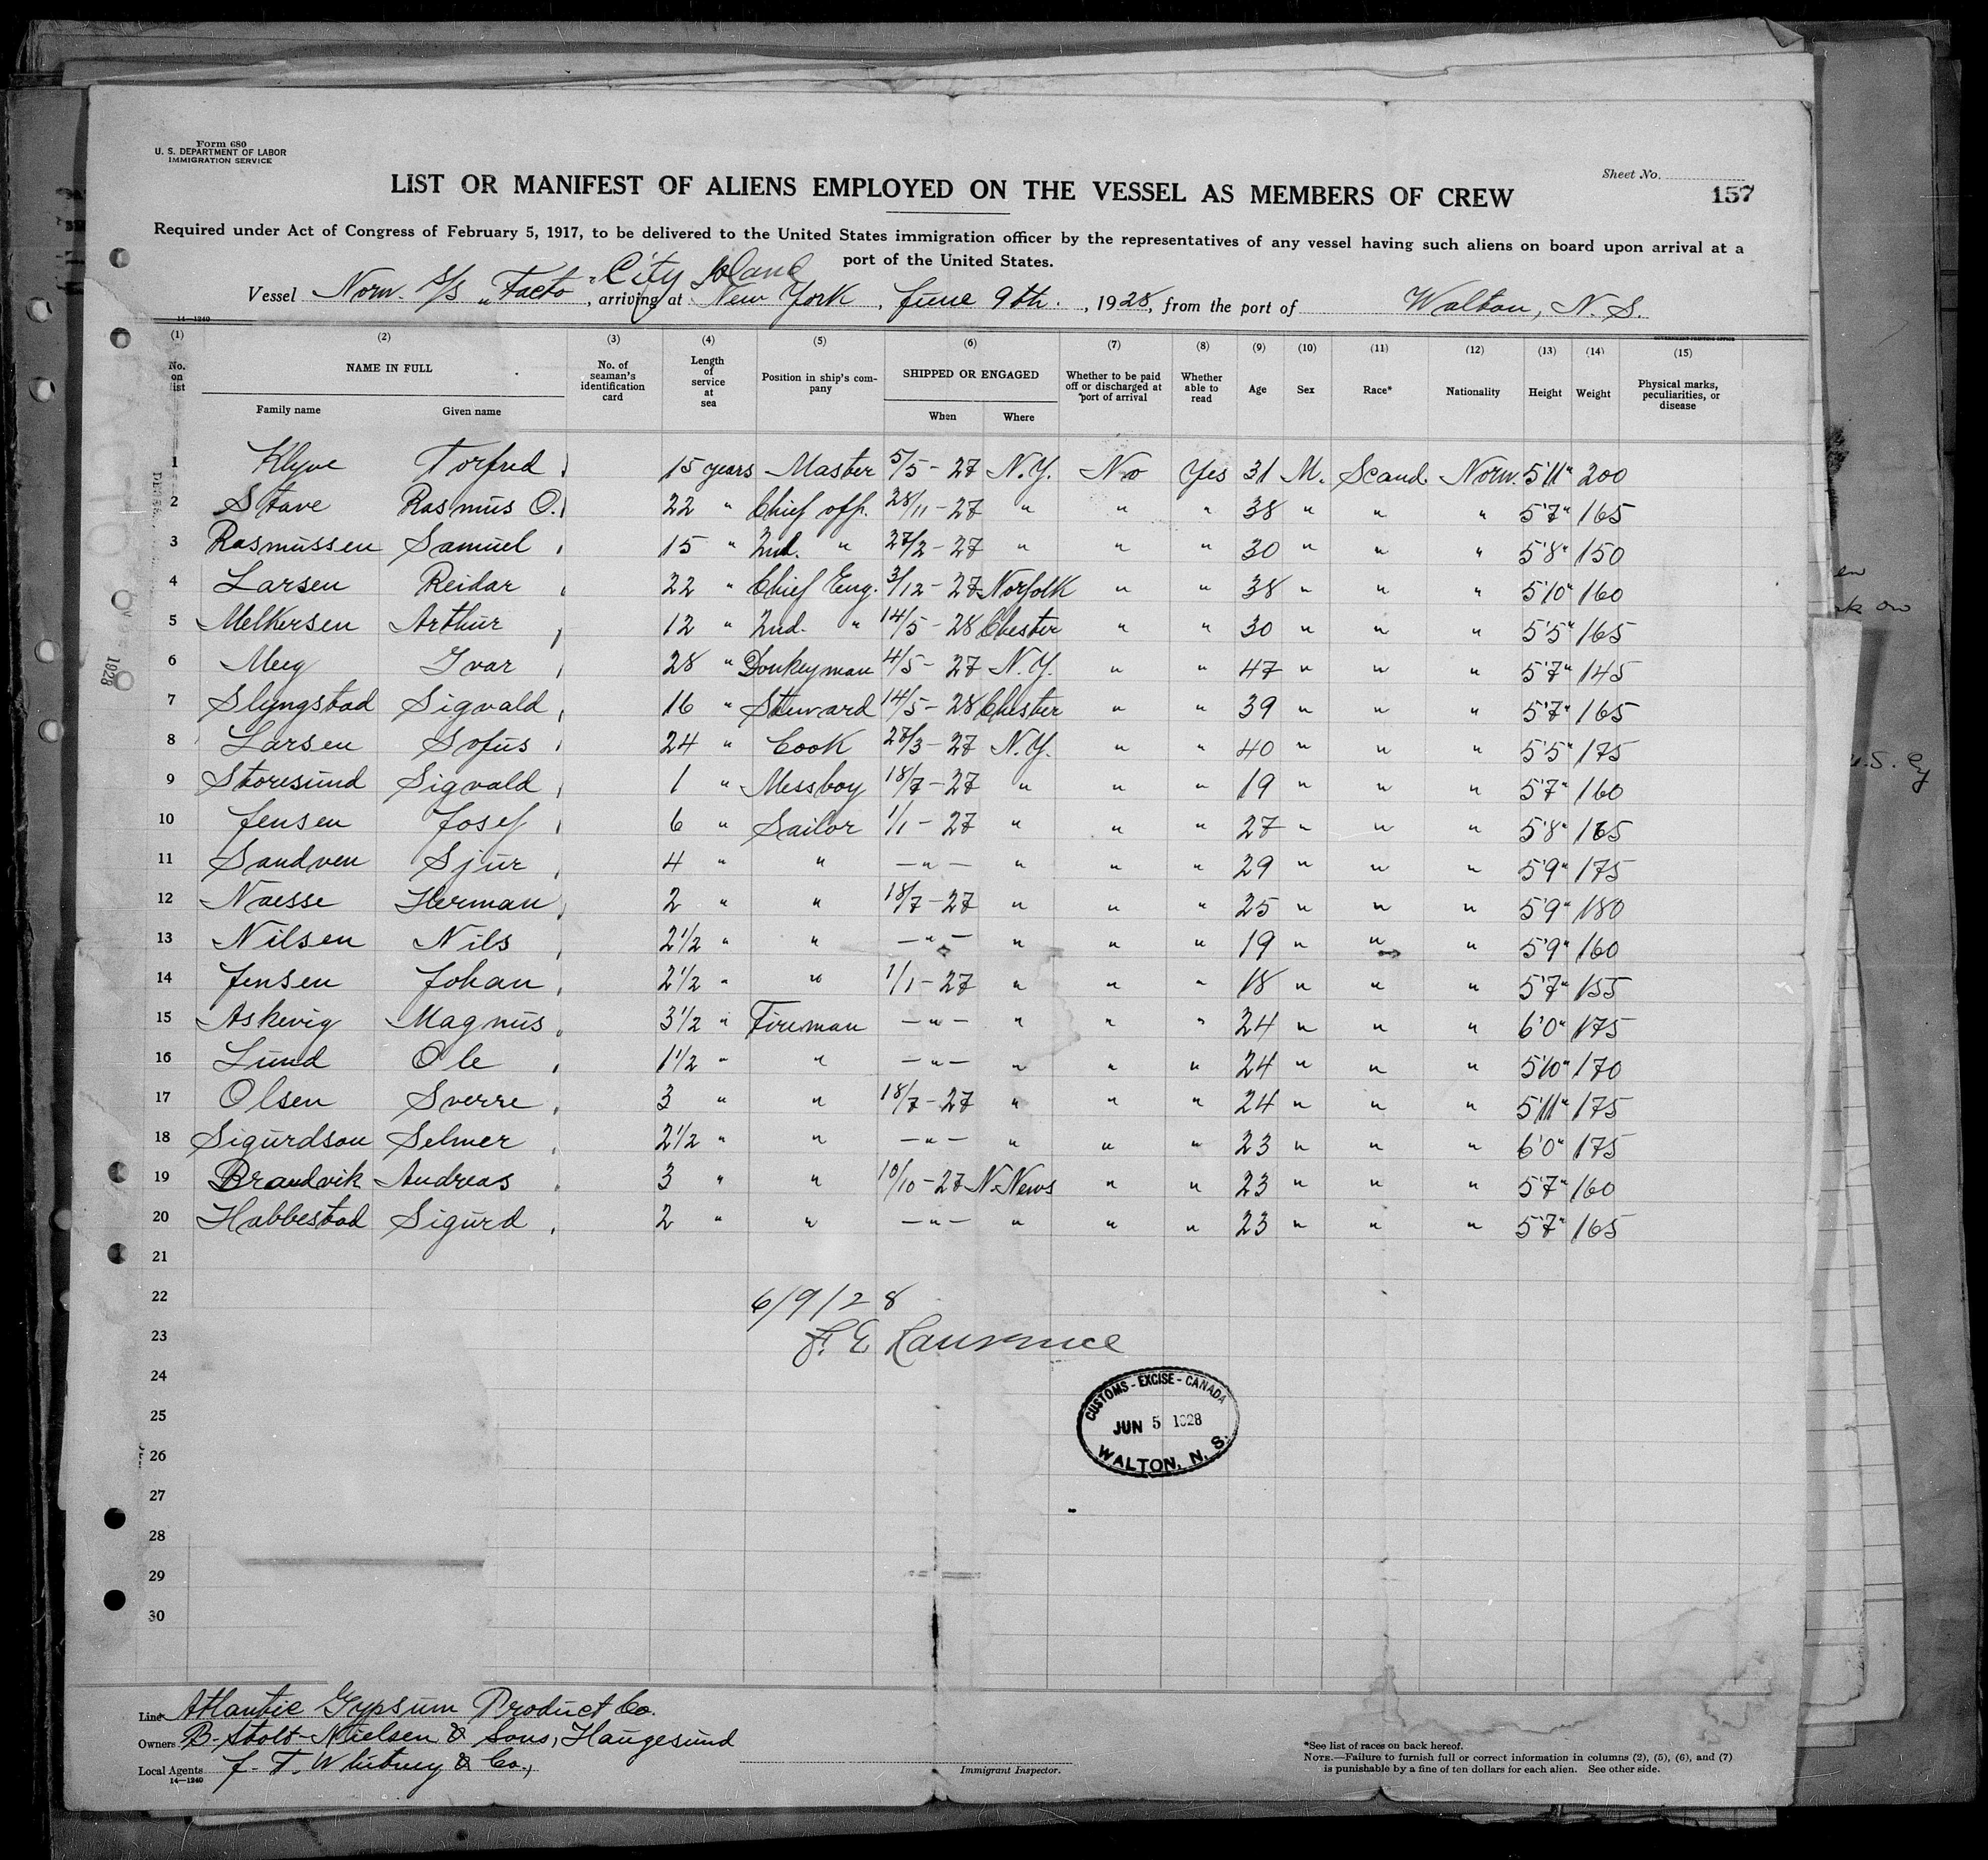 Form 680
U. S. DEPARTMENT OF LABOR
IMMIGRATION SERVICE
Sheet No.
157
LIST OR MANIFEST OF ALIENS EMPLOYED ON THE VESSEL AS MEMBERS OF CREW
Required under Act of Congress of February 5, 1917, to be delivered to the United States immigration officer by the representatives of any vessel having such aliens on board upon arrival at a
port of the United States.
City Island
Vessel Norw. S/S "Facto", arriving at New York, June 9th., 1928, from the port of Walton, N. S.
14—1240
(1) (2) (3) (4) (5) (6) (7) (8) (9) (10) (11) (12) (13) (14) (15)
No. on list NAME IN FULL No. of seaman's identification card Length of service at sea Position in ship's company SHIPPED OR ENGAGED Whether to be paid off or discharged at port of arrival Whether able to read Age Sex Race* Nationality Height Weight Physical marks, peculiarities, or disease
Family name Given name When Where
1 Klyve Torfred 15 years Master 5/5-27 N.Y. No Yes 31 M. Scand. Norw. 5'11" 200
2 Stave Rasmus O. 22 " Chief off. 28/11-27 " " " 38 " " " 5'7" 165
3 Rasmussen Samuel 15 " 2nd. " 27/2-27 " " " 30 " " " 5'8" 150
4 Larsen Reidar 22 " Chief Eng. 3/12-27 Norfolk " " 38 " " " 5'10" 160
5 Melkersen Arthur 12 " 2nd. " 14/5-28 Chester " " 30 " " " 5'5" 165
6 Meeg Ivar 28 " Donkeyman 4/5-27 N.Y. " " 47 " " " 5'7" 145
7 Slyngstad Sigvald 16 " Steward 14/5-28 Chester " " 39 " " " 5'7" 165
8 Larsen Sofus 24 " Cook 27/3-27 N.Y. " " 40 " " " 5'5" 175
9 Storesund Sigvald 1 " Messboy 18/7-27 " " " 19 " " " 5'7" 160
10 Jensen Josef 6 " Sailor 1/1-27 " " " 27 " " " 5'8" 165
11 Sandven Sjur 4 " " —"— " " " 29 " " " 5'9" 175
12 Naesse Herman 2 " " 18/7-27 " " " 25 " " " 5'9" 180
13 Nilsen Nils 2 1/2 " " —"— " " " 19 " " " 5'9" 160
14 Jensen Johan 2 1/2 " " 1/1-27 " " " 18 " " " 5'7" 155
15 Askevig Magnus 3 1/2 " Fireman —"— " " " 24 " " " 6'0" 175
16 Lund Ole 1 1/2 " " —"— " " " 24 " " " 5'10" 170
17 Olsen Sverre 3 " " 18/7-27 " " " 24 " " " 5'11" 175
18 Sigurdson Selmer 2 1/2 " " —"— " " " 23 " " " 6'0" 175
19 Brandvik Andreas 3 " " 10/10-27 N.News " " 23 " " " 5'7" 160
20 Habbestad Sigurd 2 " " —"— " " " 23 " " " 5'7" 165
21
22
23
24
25
26
27
28
29
30
6/9/28
F. E. Lawrence
CUSTOMS - EXCISE - CANADA
JUN 5 1928
WALTON, N. S.
1928
Line Atlantic Gypsum Product Co.
Owners B. Stolt-Nielsen & Sons, Haugesund
Local Agents J. T. Whitney & Co.,
14—1240
Immigrant Inspector.
*See list of races on back hereof.
NOTE.—Failure to furnish full or correct information in columns (2), (5), (6), and (7)
is punishable by a fine of ten dollars for each alien. See other side.